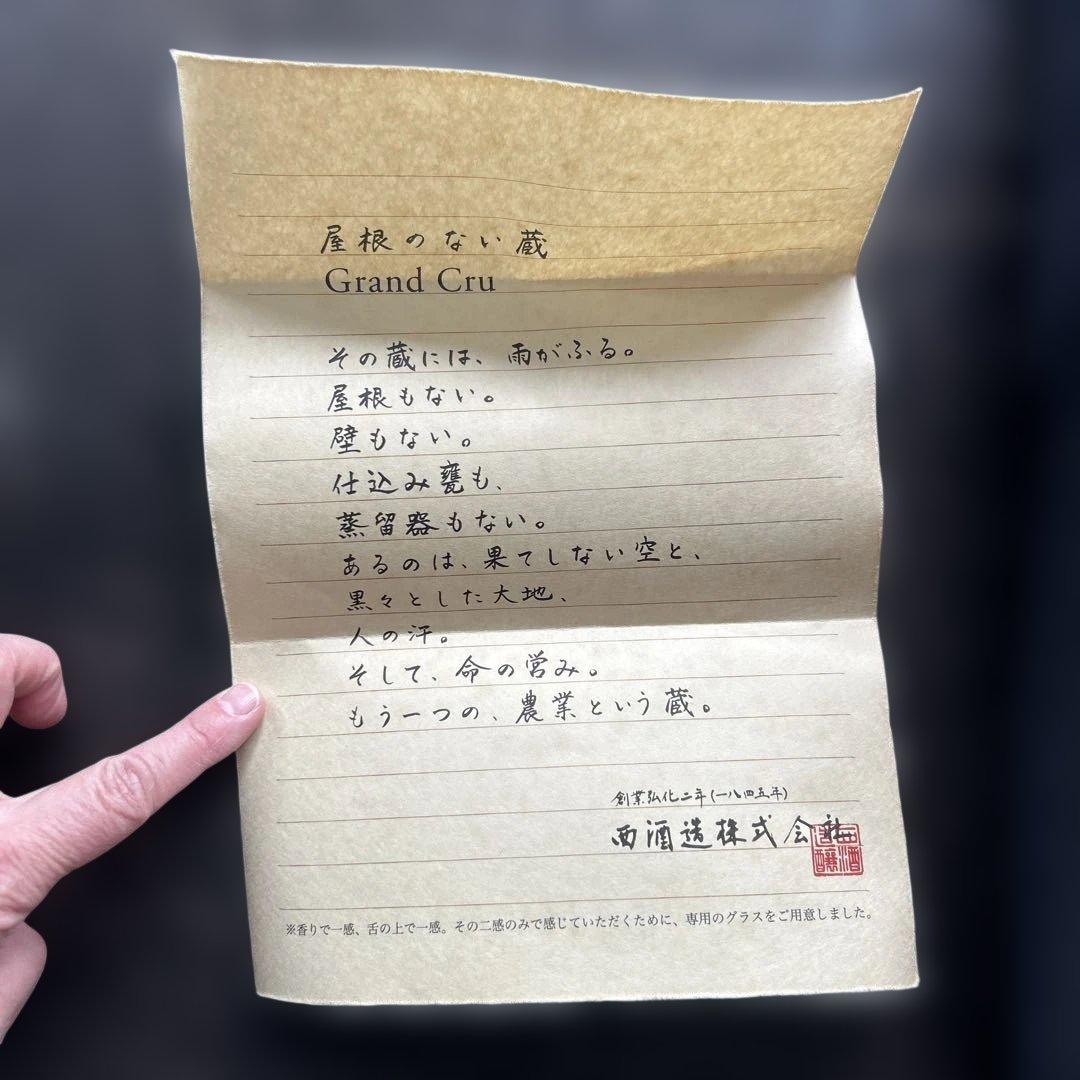 屋根のない蔵
Grand Cru
その蔵には、雨がふる。
屋根もない。
壁もない。
仕込み甕も、
蒸留器もない。
あるのは、果てしない空と、
黒々とした大地、
人の汗。
そして、命の営み。
もう一つの、農業という蔵。
創業弘化二年(一八四五年)
西酒造株式会社
※香りで一感、舌の上で一感。その二感のみで感じていただくために、専用のグラスをご用意しました。